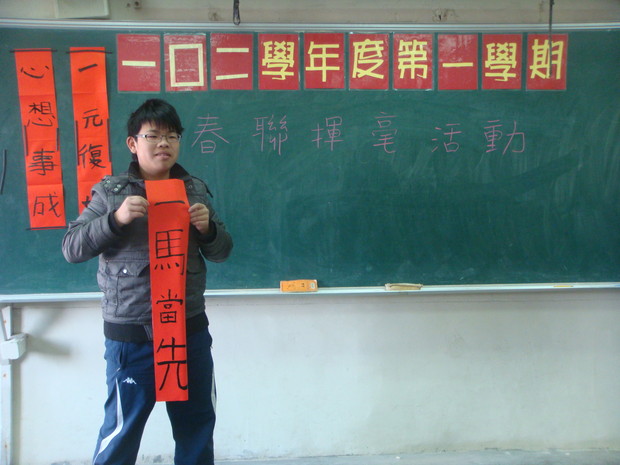 一〇二學年度第一學期
春聯揮毫活動
一元復
心想事成
一馬當先